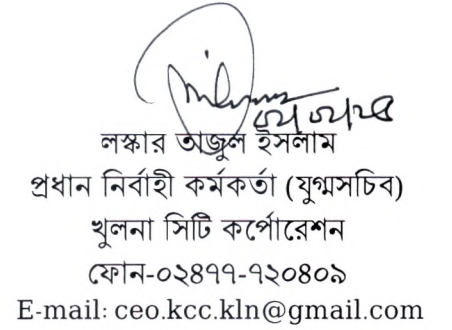 লস্কার তাজুল ইসলাম
প্রধান নির্বাহী কর্মকর্তা (যুগ্মসচিব)
খুলনা সিটি কর্পোরেশন
ফোন-০২৪৭৭-৭২০৪০৯
E-mail: ceo.kcc.kln@gmail.com